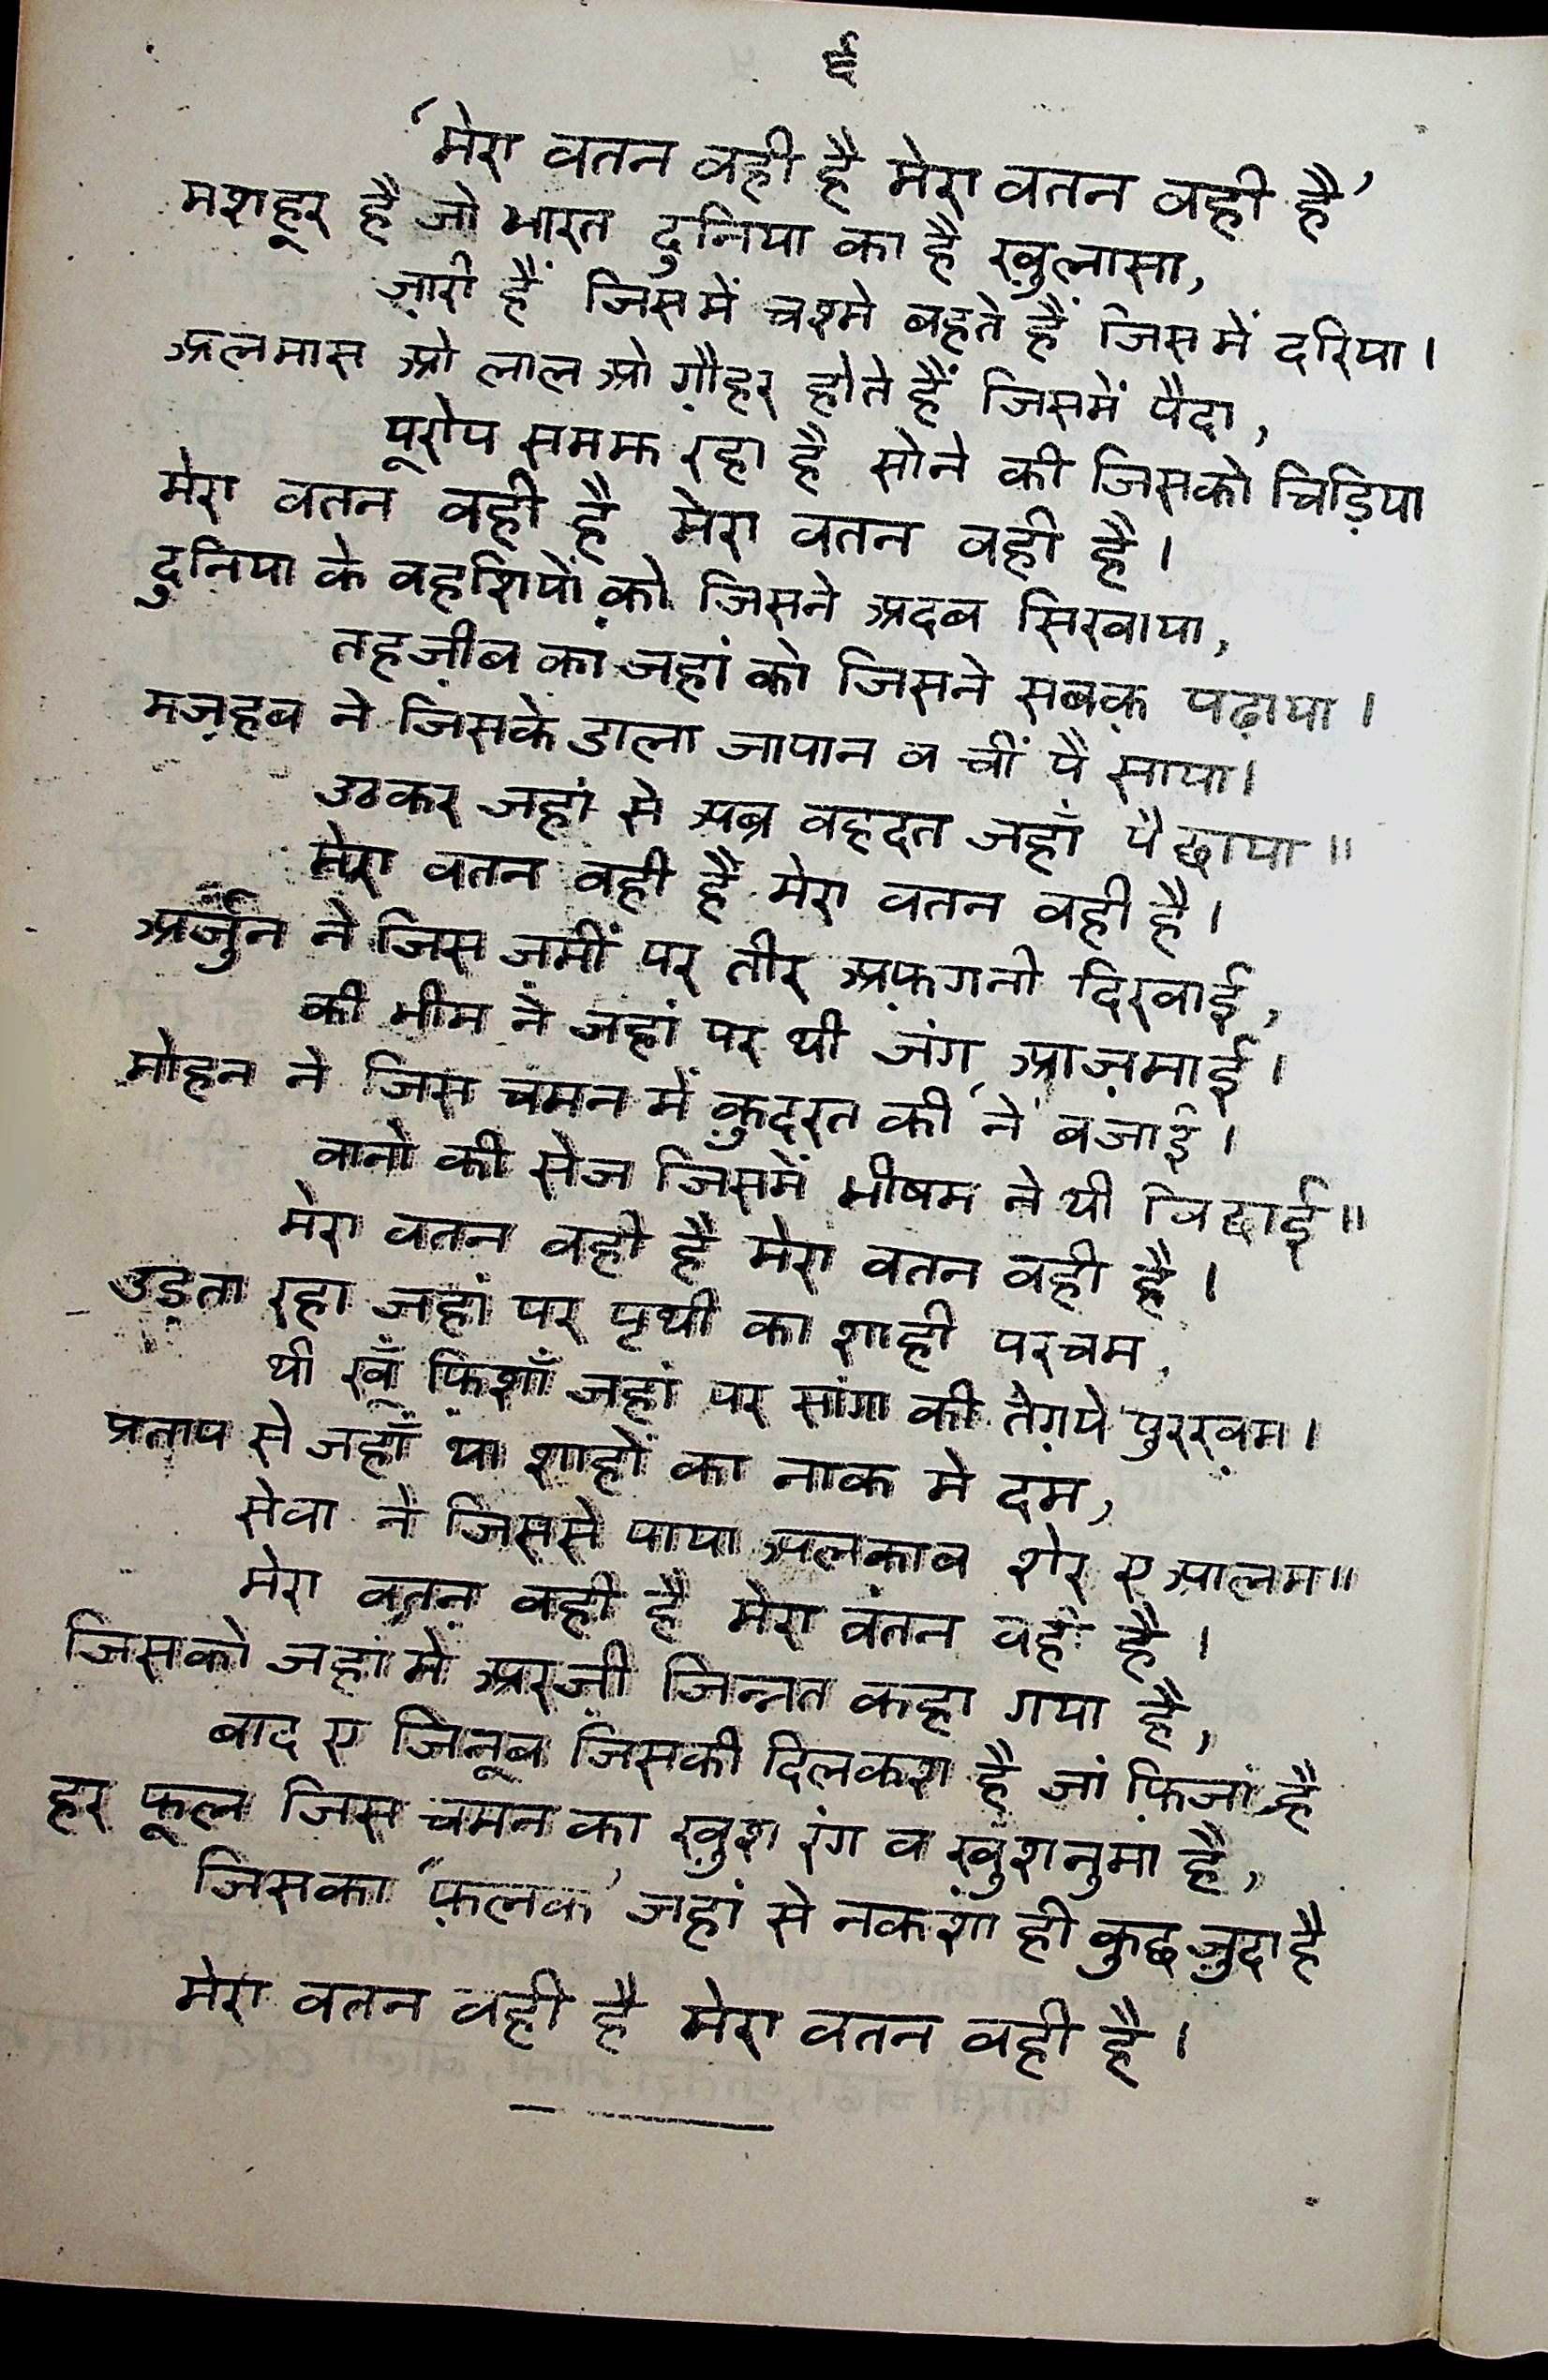 ई
‘मेरा वतन वही है मेरा वतन वही है’
मशहूर है जो भारत दुनिया का है ख़ुलासा,
ज़ारी हैं जिसमें चश्मे बहते हैं जिसमें दरिया।
अलमास ओ लाल ओ ग़ौहर होते हैं जिसमें पैदा,
यूरोप समझ रहा है सोने की जिसको चिड़िया
मेरा वतन वही है मेरा वतन वही है।
दुनिया के वहशियों को जिसने अदब सिखाया,
तहज़ीब का जहां को जिसने सबक़ पढ़ाया।
मज़हब ने जिसके डाला जापान व चीं पै साया।
उठकर जहां से अब्र वहदत जहाँ पै छाया॥
मेरा वतन वही है मेरा वतन वही है।
अर्जुन ने जिस जमीं पर तीर अफ़गनी दिखाई,
की भीम ने जहां पर थी जंग आज़माई।
मोहन ने जिस चमन में क़ुदरत की ‘ने’ बजाई।
वानो की सेज जिसमें भीषम ने थी विछाई॥
मेरा वतन वही है मेरा वतन वही है।
उड़ता रहा जहां पर पृथी का शाही परचम,
थी खूँ फ़िशाँ जहां पर सांगा की तेग़ये पुरख़म।
प्रताप से जहाँ था शाहों का नाक मे दम,
सेवा ने जिससे पाया अलकाव शेर ए आलम॥
मेरा वतन वही है मेरा वतन वही है।
जिसको जहां में अरज़ी जिन्नत कहा गया है,
बाद ए जिनूब जिसकी दिलकश है जां फ़िजां है
हर फूल जिस चमन का ख़ुश रंग व ख़ुशनुमा है,
जिसका ‘फ़लक’ जहां से नकशा ही कुछ जुदा है
मेरा वतन वही है मेरा वतन वही है।